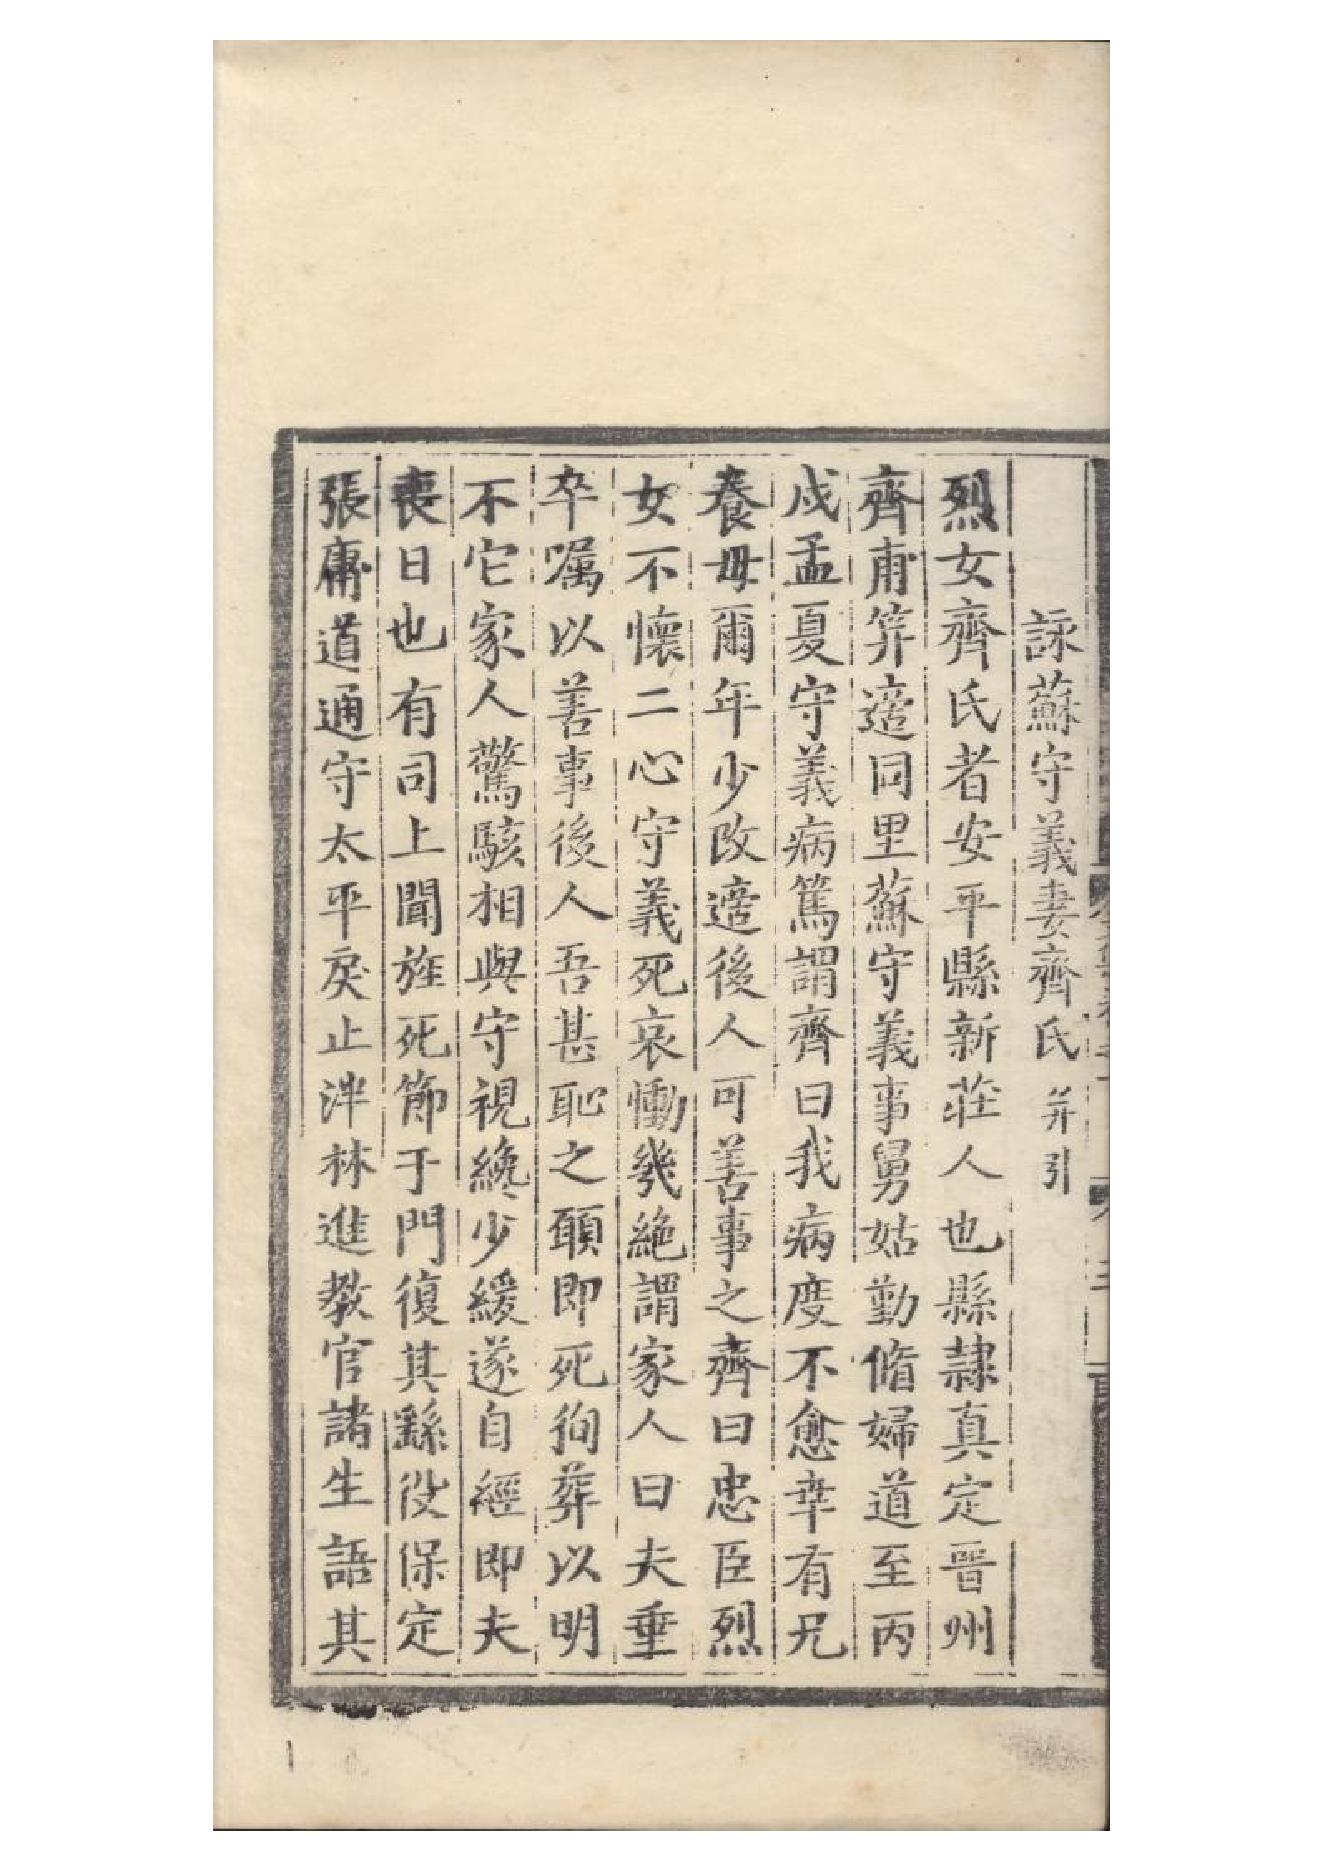 詠蘇守義妻齊氏并引
烈女齊氏者安平縣新莊人也縣隷真定晉州
齊甫筓適同里蘇守義事舅姑勤脩婦道至丙
戍孟夏守義病篤謂齊曰我病度不愈幸有兄
養母爾年少改適後人可善事之齊曰忠臣烈
女不懷二心守義死哀慟幾絶謂家人曰夫垂
卒嘱以善事後人吾甚恥之願即死徇葬以明
不它家人驚駭相與守視纔少緩遂自經即夫
喪日也有司上聞旌死節于門復其繇役保定
張庸道通守太平戾止泮林進教官諸生語其